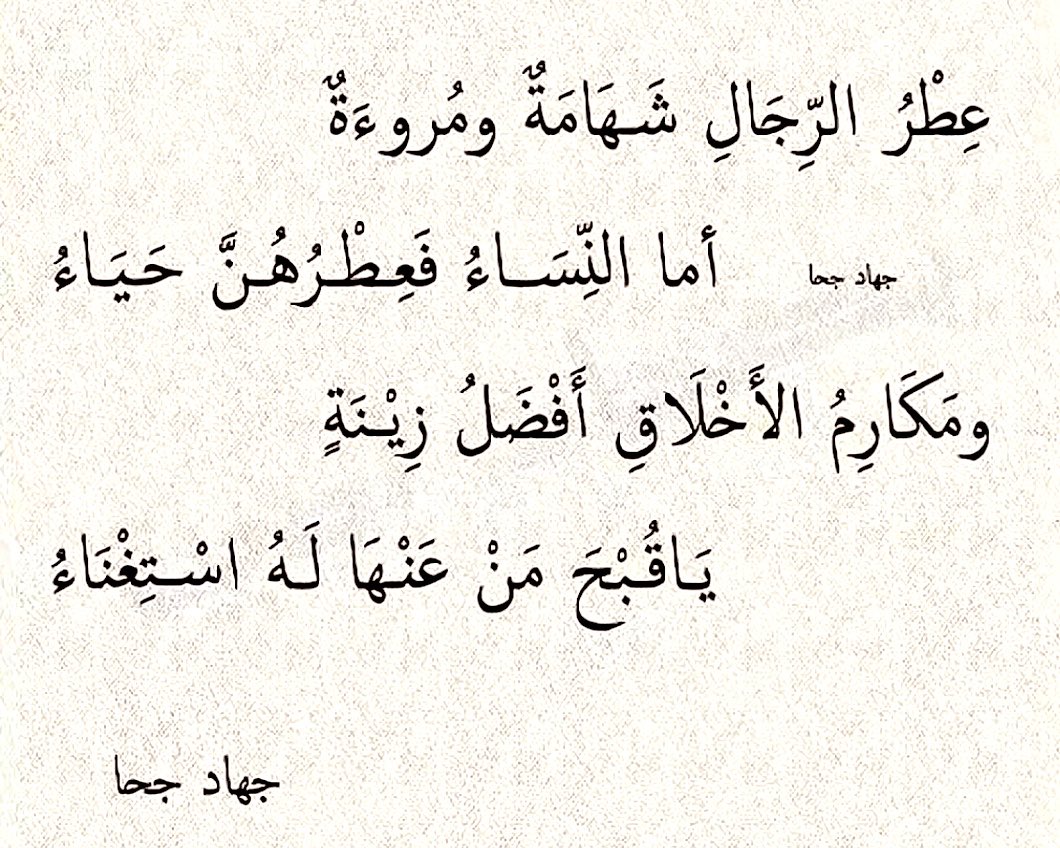 عِطْرُ الرِّجَالِ شَهَامَةٌ ومُروءَةٌ
أما النِّسَاءُ فَعِطْرُهُنَّ حَيَاءُ
جهاد جحا
ومَكَارِمُ الأَخْلَاقِ أَفْضَلُ زِيْنَةٍ
يَاقُبْحَ مَنْ عَنْهَا لَهُ اسْتِغْنَاءُ
جهاد جحا